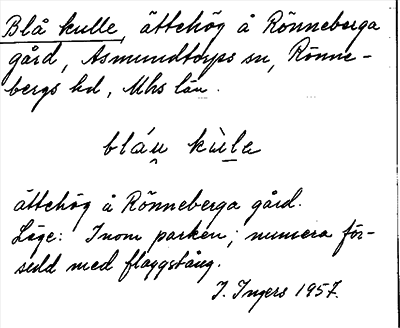 Blå kulle, ättehög å Rönneberga
gård, Asmundtorps sn, Rönne-
bergs hd, Mhs län.
bláu̯ kùlle
ättehög å Rönneberga gård.
Läge: Inom parken; numera för-
sedd med flaggstång.
I. Ingers 1957.